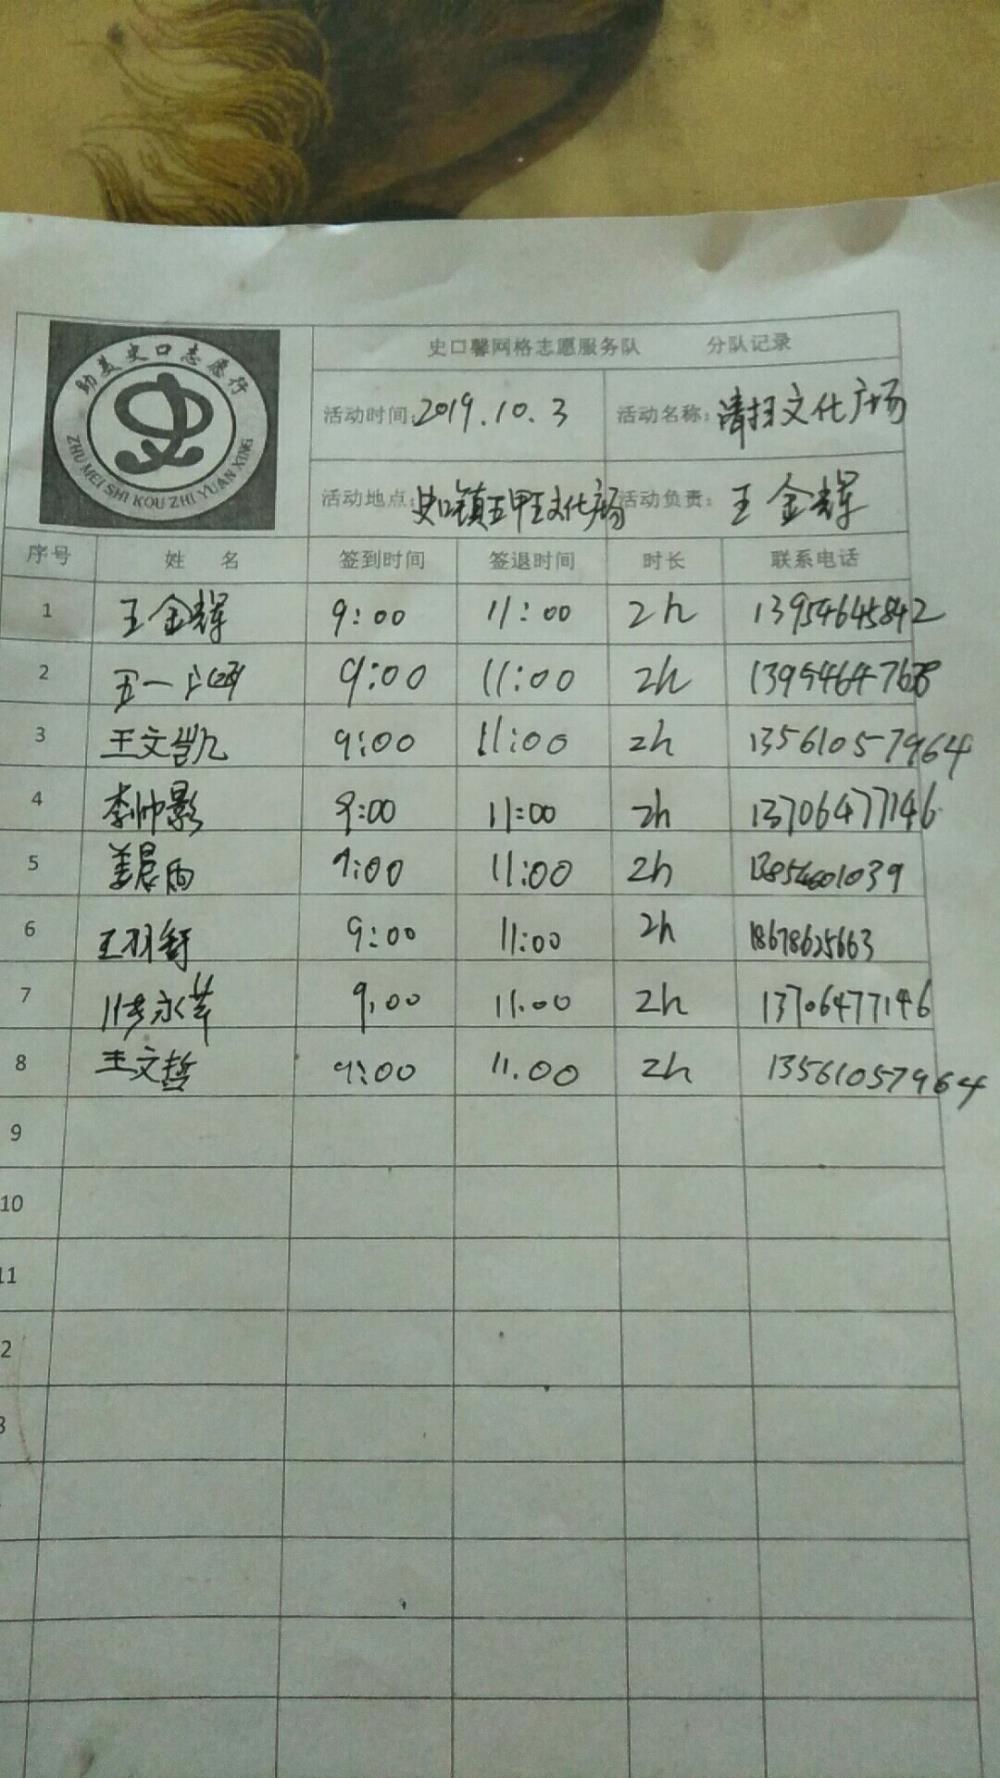 助美史口志愿行
ZHU MEI SHI KOU ZHI YUAN XING
史口馨网格志愿服务队 分队记录
活动时间: 2019.10.3 活动名称: 清扫文化广场
活动地点: 史口镇五甲王文化广场 活动负责: 王金辉
序号 姓 名 签到时间 签退时间 时长 联系电话
1 王金辉 9:00 11:00 2h 13954645842
2 9:00 11:00 2h
3 王文凯 9:00 11:00 2h 13561057964
4 李帅影 9:00 11:00 2h 13706477146
5 姜晨雨 9:00 11:00 2h 13854601039
6 王羽舒 9:00 11:00 2h 18678625663
7 9:00 11:00 2h 13706477146
8 王文哲 9:00 11.00 2h 13561057964
9
10
11
2
3